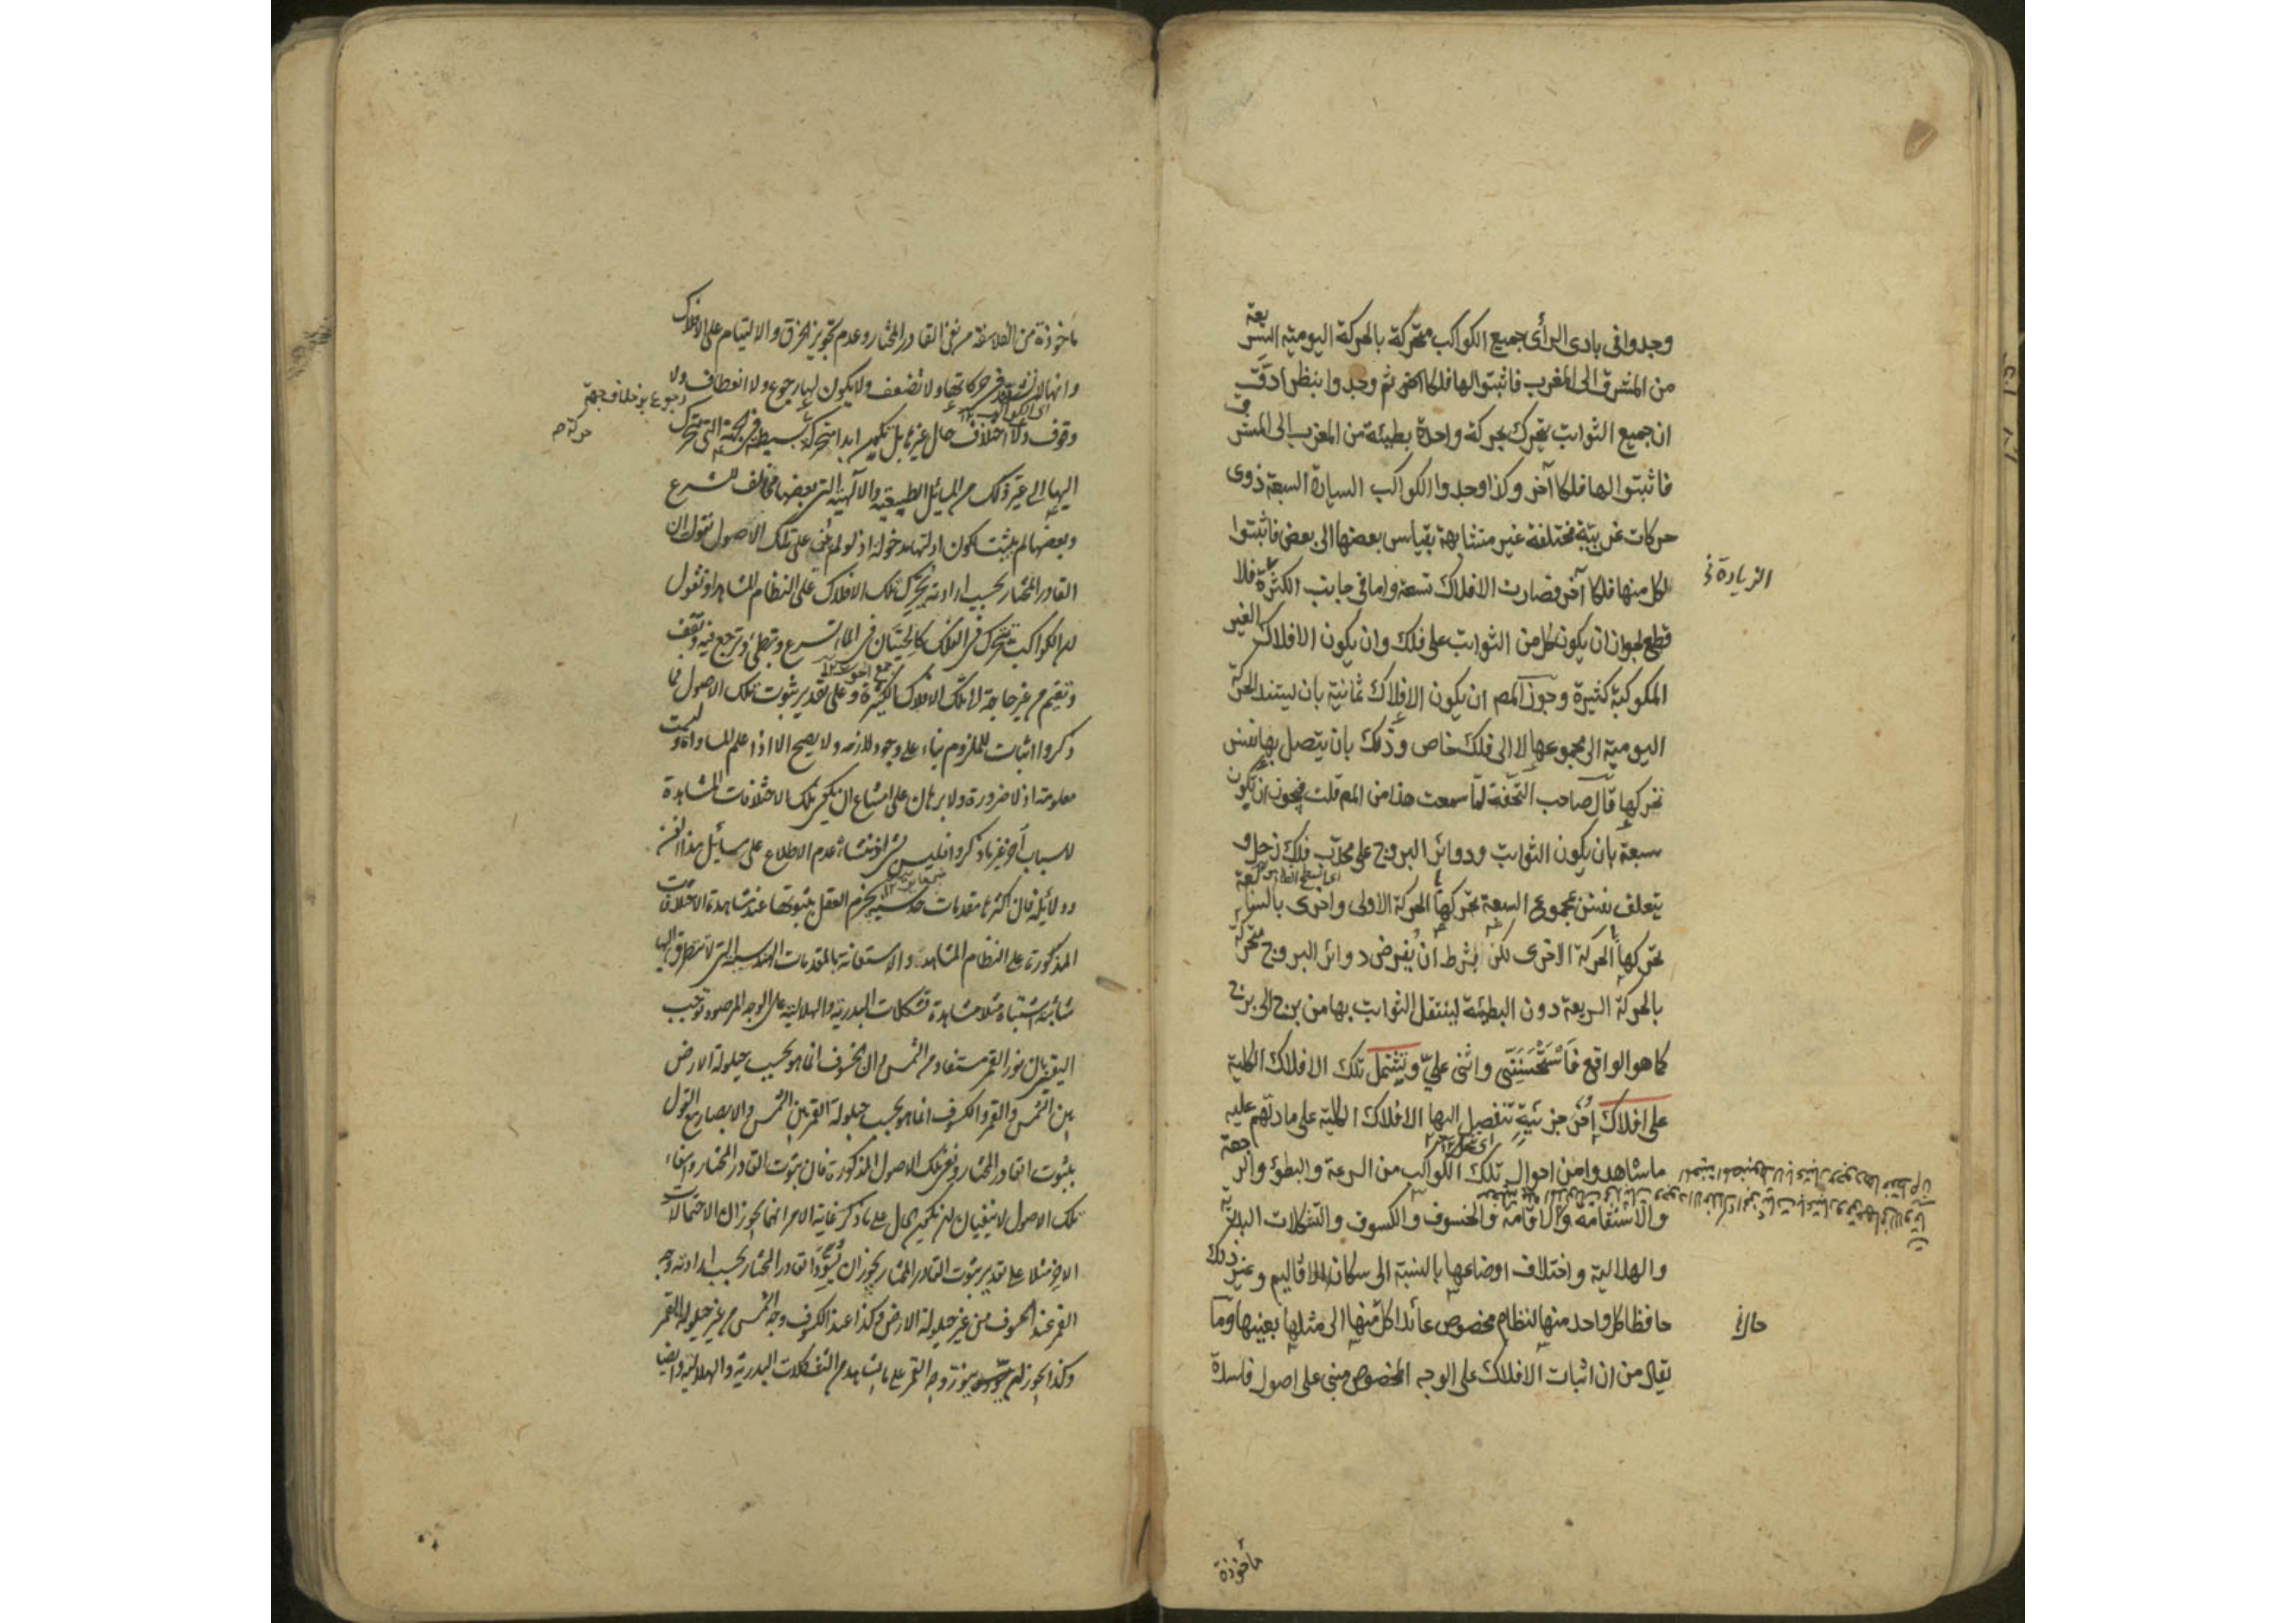 وجدوا فى بادى الرأى جميع الكواكب متحركة بالحركة اليومية السريعة
من المشرق الى المغرب فاثبتوا لها فلكا آخر ثم وجدوا بنظر ادق
ان جميع الثوابت يتحرك بحركة واحدة بطيئة من المغرب الى المشرق
فاثبتوا لها فلكا آخر وكذا وجدوا الكواكب السيارة السبعة ذوى
حركات غربية مختلفة غير متشابهة بقياس بعضها الى بعض فاثبتوا
لكل منها فلكا آخر فصارت الافلاك تسعة واما فى جانب الكثرة فلا
الزيادة
قطع لجواز ان يكون كل من الثوابت على فلك وان يكون الافلاك الغير
المكوكبة كثيرة وجوز المص ان يكون الافلاك ثمانية بان يستند الحركة
اليومية الى مجموعها لا الى فلك خاص وذلك بان يتصل بها نفس
تحركها قال صاحب التحفة لما سمعت هذا من المص قلت فيجوز ان يكون
سبعة بان يكون الثوابت ودوائر البروج على محدب فلك زحل و
يتعلق نفس بمجموع السبعة تحركها الحركة الاولى واخرى بالسابعة
تحركها الحركة الاخرى لكن بشرط ان يفرض دوائر البروج متحركة
بالحركة السريعة دون البطيئة لينتقل الثوابت بها من برج الى برج
كما هو الواقع فاستحسننى واثنى على وتشتمل تلك الافلاك الكلية
على افلاك اخر جزئية تنفصل اليها الافلاك الكلية على ما دلهم عليه
ما شاهدوا من احوال تلك الكواكب من السرعة والبطؤ والرجعة
والاستقامة والاقامة والخسوف والكسوف والتشكلات البدرية
والهلالية واختلاف اوضاعها بالنسبة الى سكان الاقاليم وغير ذلك
حافظا كل واحد منها لنظام مخصوص عائدا كل منها الى مثلها بعينها وما
يقال من ان اثبات الافلاك على الوجه المخصوص مبنى على اصول فاسدة
مأخوذة
مأخوذة من الفلاسفة من نفى القادر المختار وعدم تجويز الخرق والالتيام على الافلاك
وانها لا تشتد فى حركاتها ولا تضعف ولا يكون لها رجوع ولا انعطاف ولا
وقوف ولا اختلاف حال غيرها بل يكون ابدا متحركة بسيطة فى الجهة التى تتحرك
اليها الى غير ذلك من المسائل الطبيعية والآلهية التى بعضها مخالف للشرع
وبعضها لم يثبت لكون ادلتها مدخولة اذ لو لم يبن على تلك الاصول نقول ان
القادر المختار بحسب ارادته يحرك تلك الافلاك على النظام المشاهد او نقول
ان الكواكب تتحرك فى الفلك كالحيتان فى الماء تسرع وتبطئ وترجع فيه وتقف
وتقيم من غير حاجة الى تلك الافلاك الكثيرة وعلى تقدير ثبوت تلك الاصول فما
ذكروا اثبات للملزوم بناء على وجود لازمه ولا يصح الا اذا علم المساواة وليست
معلومة اذ لا ضرورة ولا برهان على امتناع ان يكون تلك الاختلافات المشاهدة
لاسباب أخر غير ما ذكروا فليس بشئ اذ منشاءه عدم الاطلاع على مسائل هذا الفن
ودلائله فان اكثرها مقدمات حدسية يجزم العقل بثبوتها عند مشاهدة الاختلافات
المذكورة على النظام المشاهد والاستعانة بالمقدمات الهندسية التى لا يتطرق اليها
شائبة اشتباه مثلا مشاهدة تشكلات البدرية والهلالية على الوجه المرصود توجب
اليقين بان نور القمر مستفاد من الشمس وان الخسوف انما هو بحسب حيلولة الارض
بين الشمس والقمر والكسوف انما هو بحسب حيلولة القمر بين الشمس والابصار مع القول
بثبوت القادر المختار ونفى تلك الاصول المذكورة فان ثبوت القادر المختار وانتفاء
تلك الاصول لا ينفيان ان يكون الحال على ما ذكر غاية الامر انهما يجوزان الاحتمالات
الاخر مثلا على تقدير ثبوت القادر المختار يجوز ان يسود القادر المختار بحسب ارادته وجه
القمر عند الخسوف من غير حيلولة الارض وكذا عند الكسوف وجه الشمس من غير حيلولة القمر
وكذا يجوز ان يسود وينور وجه القمر على ما يشاهد من التشكلات البدرية والهلالية وايضا